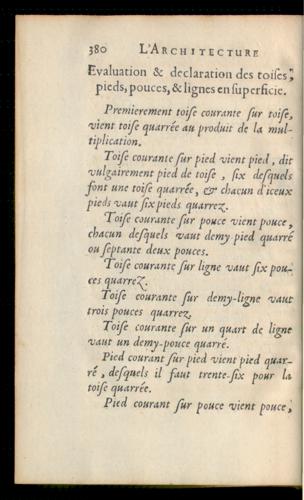 380 L'ARCHITECTURE
Evaluation & declaration des toises,
pieds, pouces, & lignes en superficie.
Premierement toise courante sur toise,
vient toise quarrée au produit de la mul-
tiplication.
Toise courante sur pied vient pied, dit
vulgairement pied de toise, six desquels
font une toise quarrée, & chacun d'iceux
pieds vaut six pieds quarrez.
Toise courante sur pouce vient pouce,
chacun desquels vaut demy-pied quarré
ou septante deux pouces.
Toise courante sur ligne vaut six pou-
ces quarrez.
Toise courante sur demy-ligne vaut
trois pouces quarrez.
Toise courante sur un quart de ligne
vaut un demy-pouce quarré.
Pied courant sur pied vient pied quar-
ré, desquels il faut trente-six pour la
toise quarrée.
Pied courant sur pouce vient pouce,